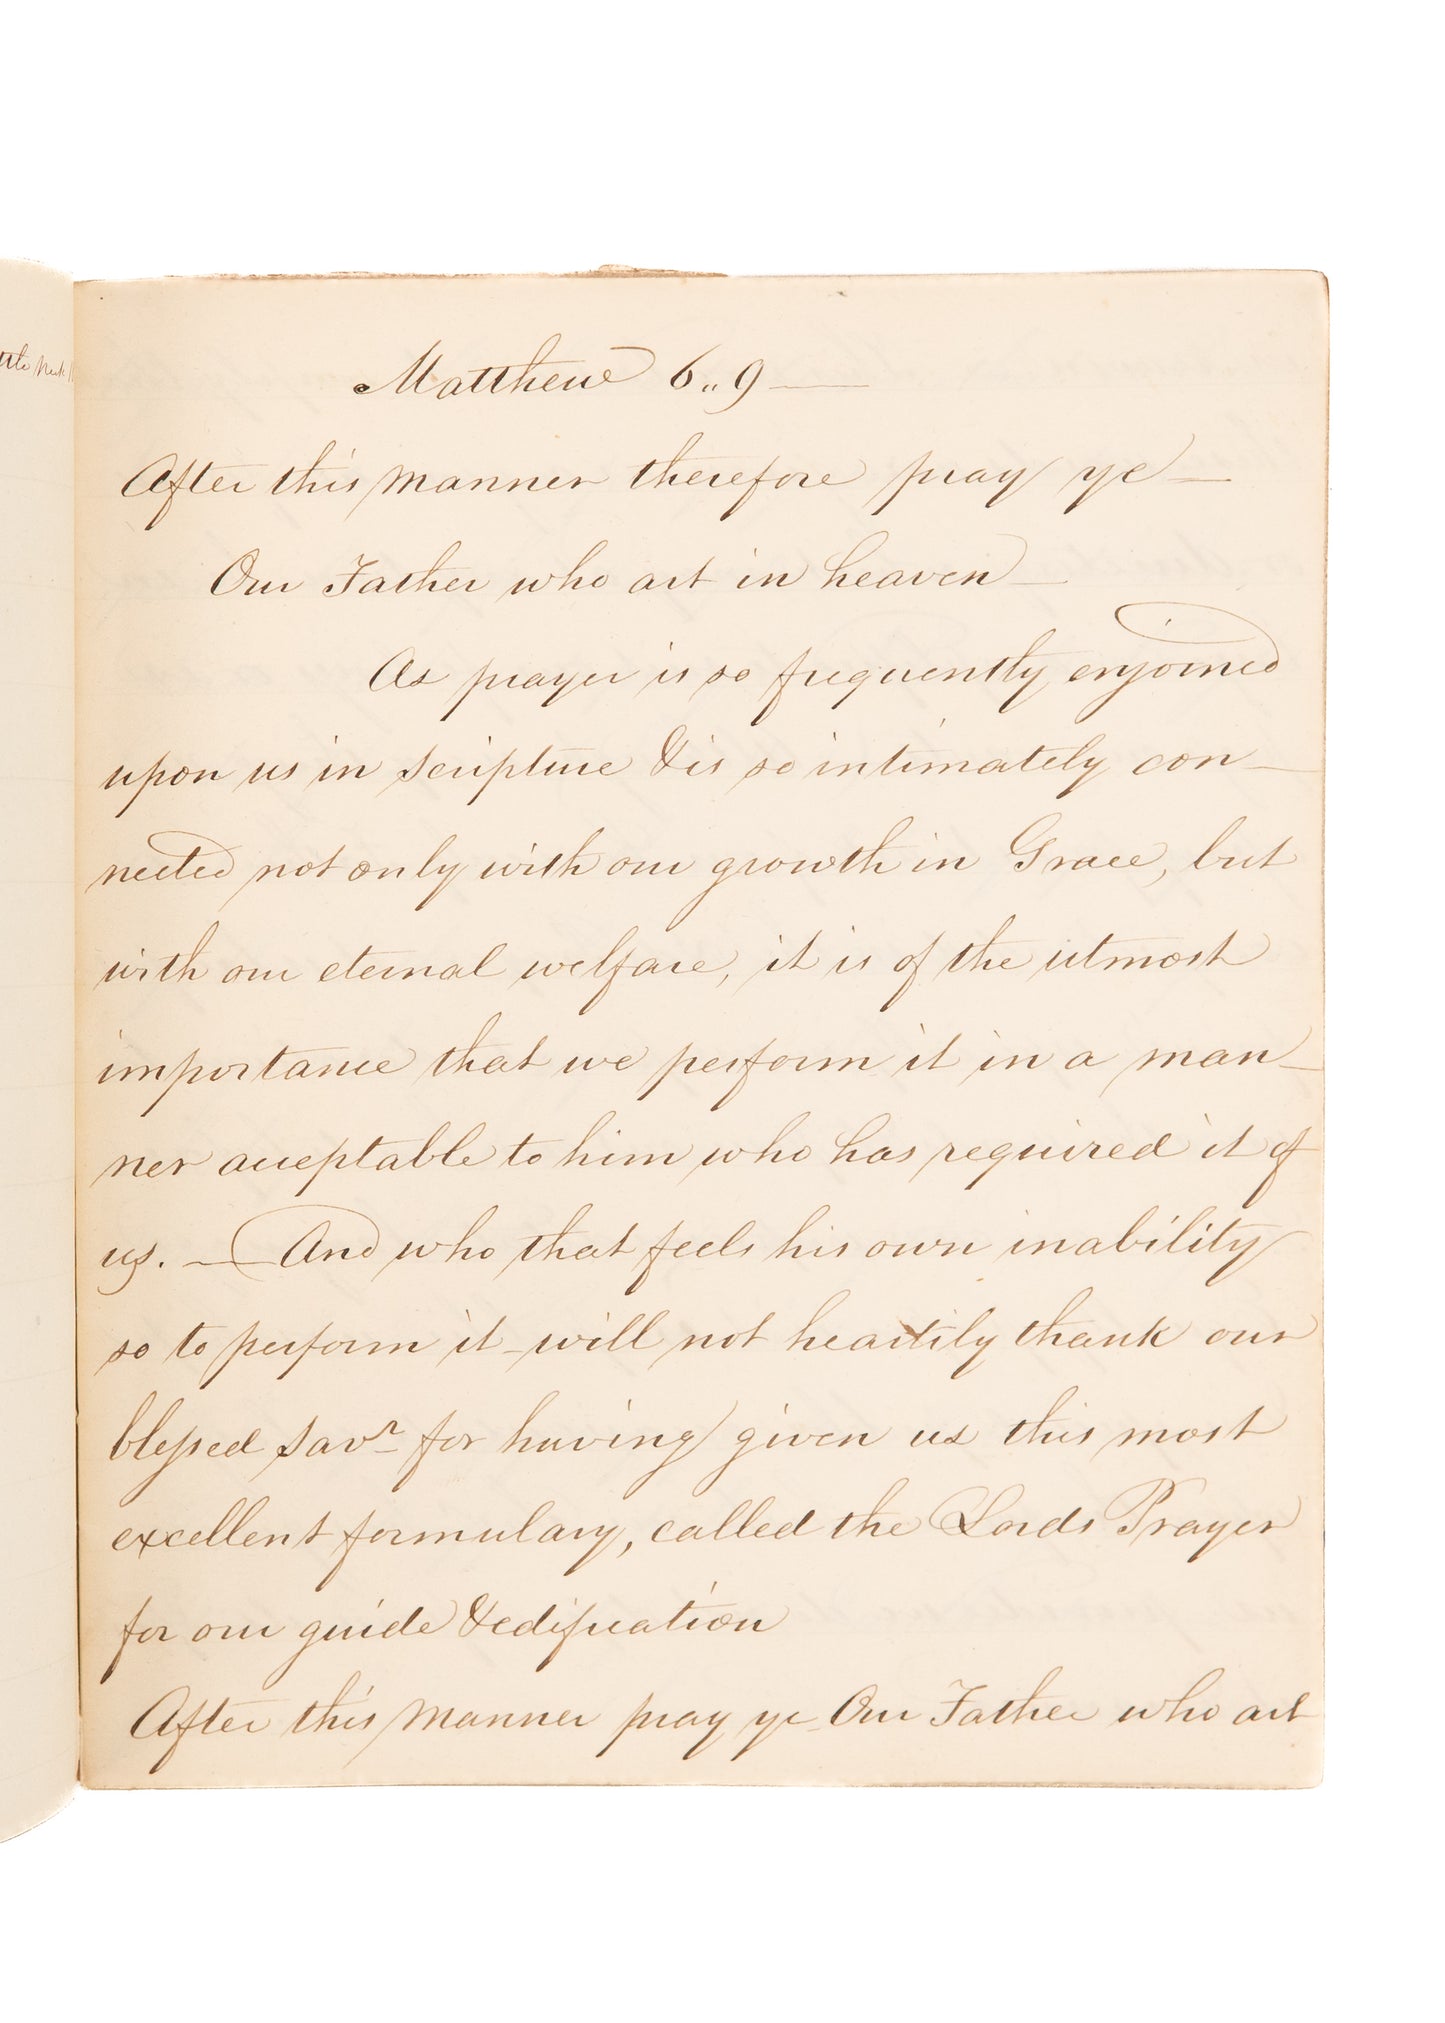 Matthew 6..9 —
After this manner therefore pray ye —
Our Father who art in heaven —
As prayer is so frequently enjoined
upon us in scripture & is so intimately con-
nected not only with our growth in Grace, but
with our eternal welfare, it is of the utmost
importance that we perform it in a man-
ner acceptable to him who has required it of
us. — And who that feels his own inability
so to perform it - will not heartily thank our
blessed Savr for having given us this most
excellent formulary, called the Lords Prayer
for our guide & edification
After this manner pray ye - Our Father who art